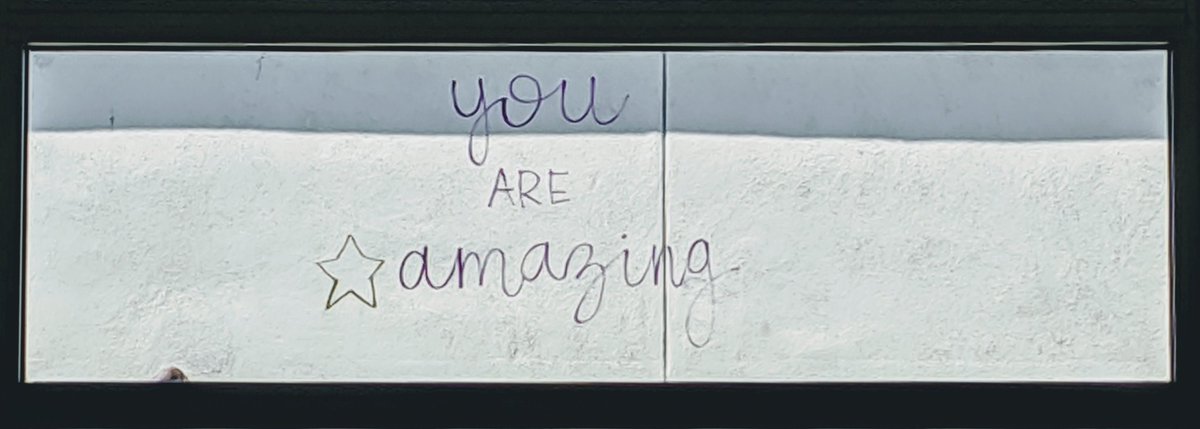 you
ARE
amazing